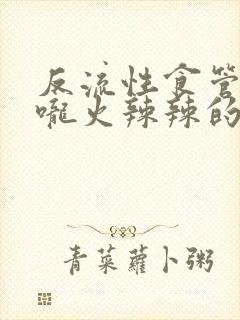 反流性食管
嚨火辣辣的
青菜蘿卜粥